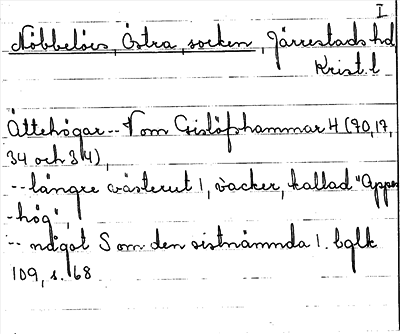 I
Nöbbelövs, Östra, socken, Järrestads hd,
Krist. l
Ättehögar -- N om Gislöfshammar 4 (70, 17,
34 och 34),
-- längre västerut 1, vacker, kallad "Appes-
-hög",
-- något S om den sistnämnda 1. bglk
109, s. 68